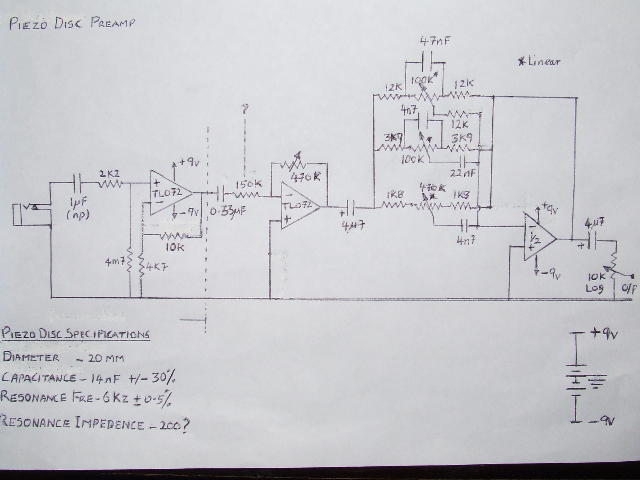 PIEZO DISC PREAMP
47nF
*Linear
12K
100K*
12K
4n7
12K
3K9
3K9
100K
22nF
?
2K2
+9V
TL072
-9V
1µF
(np)
0.33µF
150K
470K
TL072
4µ7
1K8
470K
1K8
4n7
10K
4m7
4K7
+9V
1/2
-9V
4µ7
10K
LOG
O/P
PIEZO DISC SPECIFICATIONS
DIAMETER - 20 MM
CAPACITANCE - 14nF +/- 30%
RESONANCE FRE - 6 KZ ± 0.5%
RESONANCE IMPEDENCE - 200?
+9V
-9V